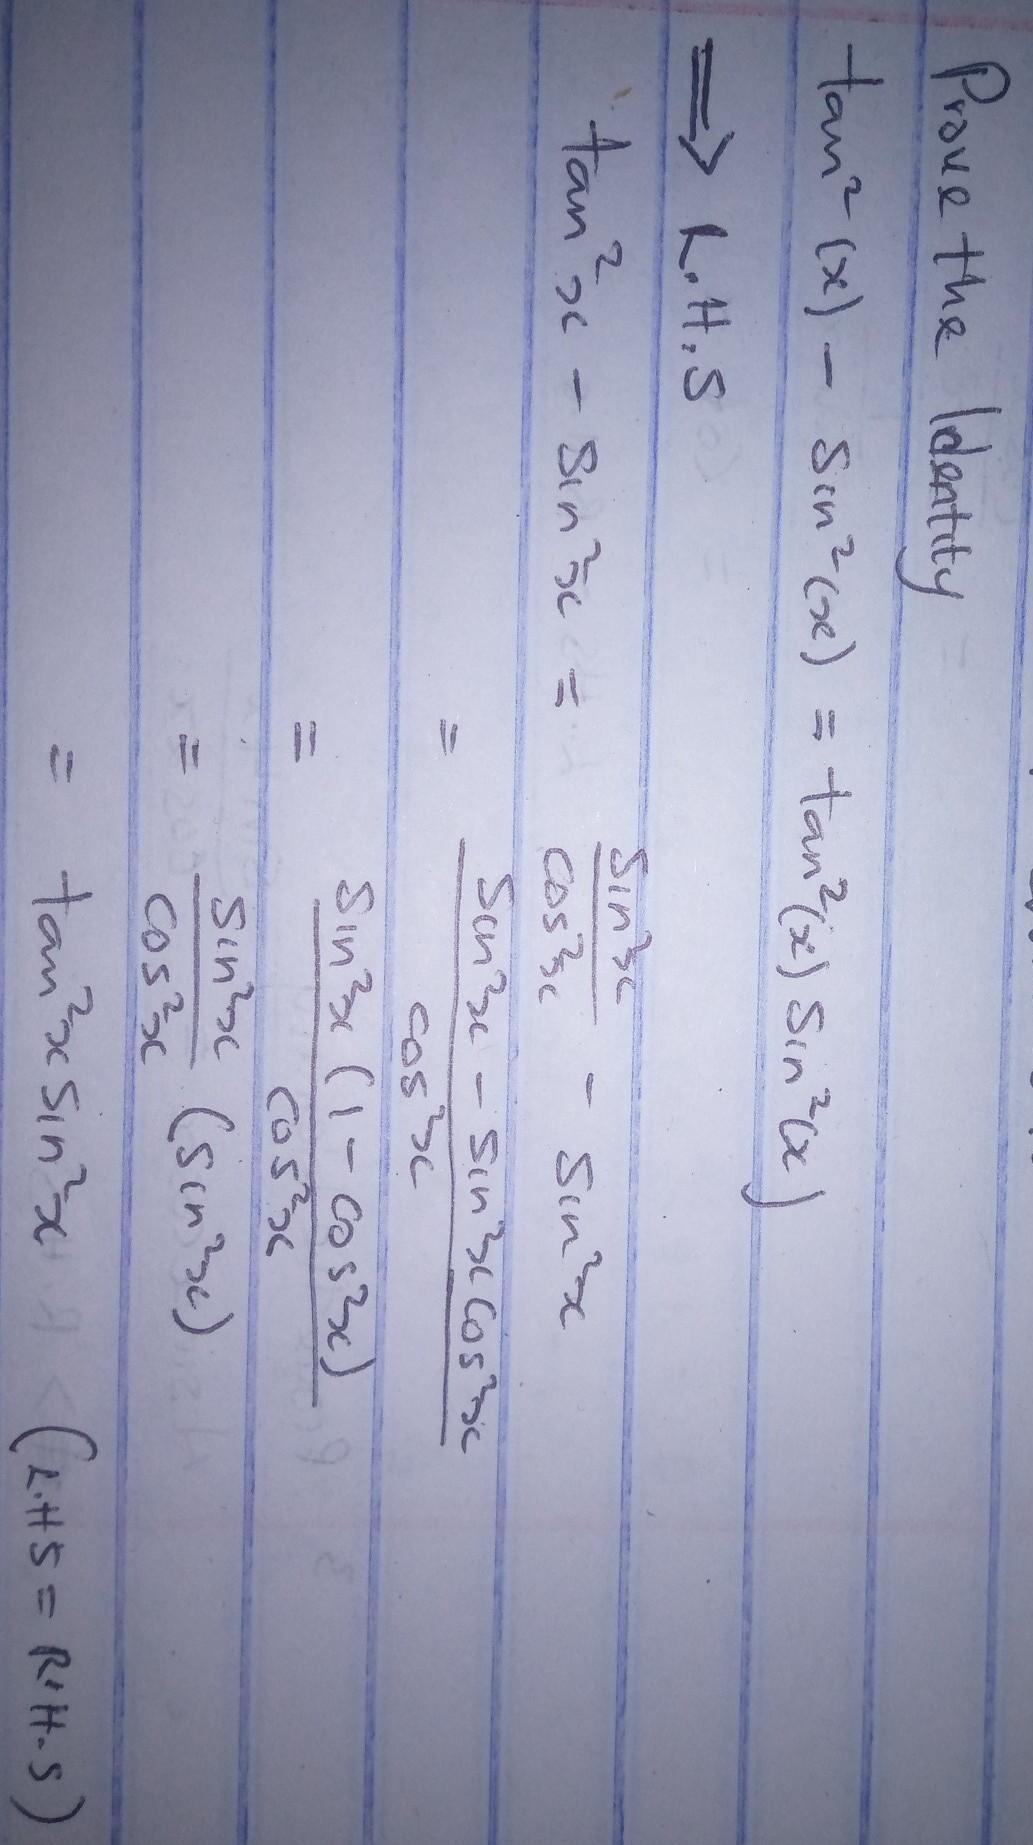 Prove the Identity
tan²(x) - sin²(x) = tan²(x) sin²(x)
⟹ L.H.S
tan²x - sin²x = sin²x/cos²x - sin²x
= (sin²x - sin²x cos²x)/cos²x
= sin²x (1 - cos²x)/cos²x
= sin²x/cos²x (sin²x)
= tan²x sin²x (L.H.S = R.H.S)